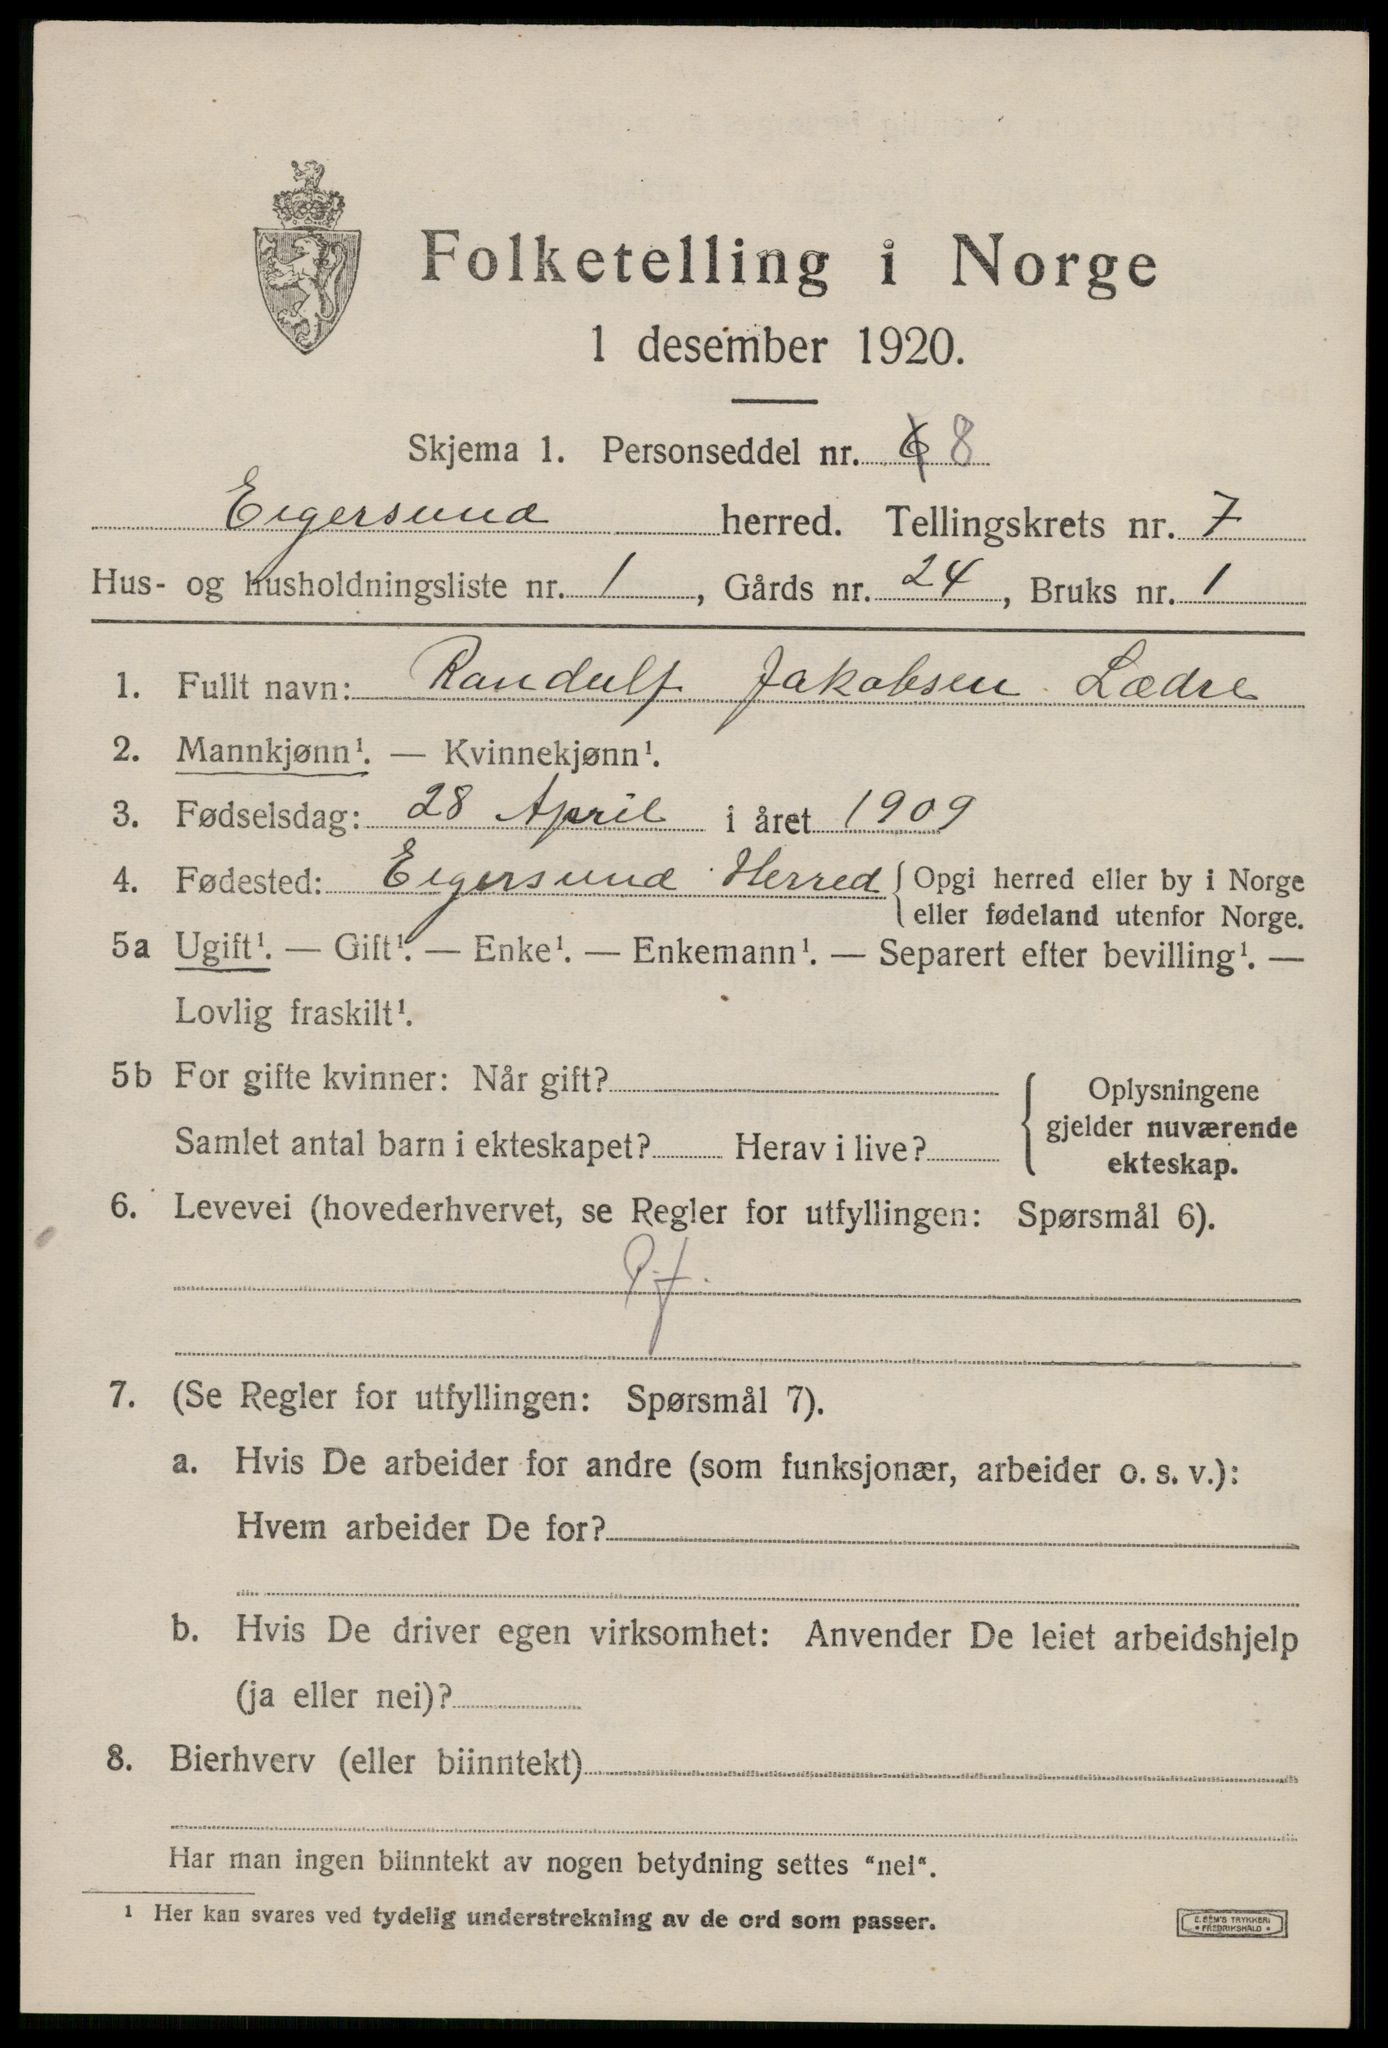 Folketelling i Norge
1 desember 1920.
Skjema 1. Personseddel nr. 6 8
Eigersund herred. Tellingskrets nr. 7
Hus- og husholdningsliste nr. 1, Gårds nr. 24, Bruks nr. 1
1. Fullt navn: Randulf Jakobsen Lædre
2. Mannkjønn¹. — Kvinnekjønn¹.
3. Fødselsdag: 28 April i året 1909
4. Fødested: Eigersund Herred {Opgi herred eller by i Norge
eller fødeland utenfor Norge.
5a Ugift¹. — Gift¹. — Enke¹. — Enkemann¹. — Separert efter bevilling¹. —
Lovlig fraskilt¹.
5b For gifte kvinner: Når gift?
Samlet antal barn i ekteskapet? Herav i live?
Oplysningene
gjelder nuværende
ekteskap.
6. Levevei (hovederhvervet, se Regler for utfyllingen: Spørsmål 6).
P.f.
7. (Se Regler for utfyllingen: Spørsmål 7).
a. Hvis De arbeider for andre (som funksjonær, arbeider o. s. v.):
Hvem arbeider De for?
b. Hvis De driver egen virksomhet: Anvender De leiet arbeidshjelp
(ja eller nei)?
8. Bierhverv (eller biinntekt)
Har man ingen biinntekt av nogen betydning settes "nei".
¹ Her kan svares ved tydelig understrekning av de ord som passer.
E. SEM'S TRYKKERI
• FREDRIKSHALD •